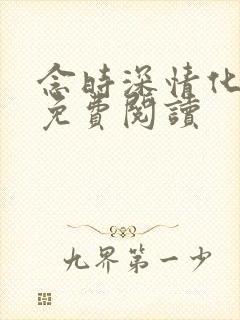 念時深情化
免費閱讀
九界第一少